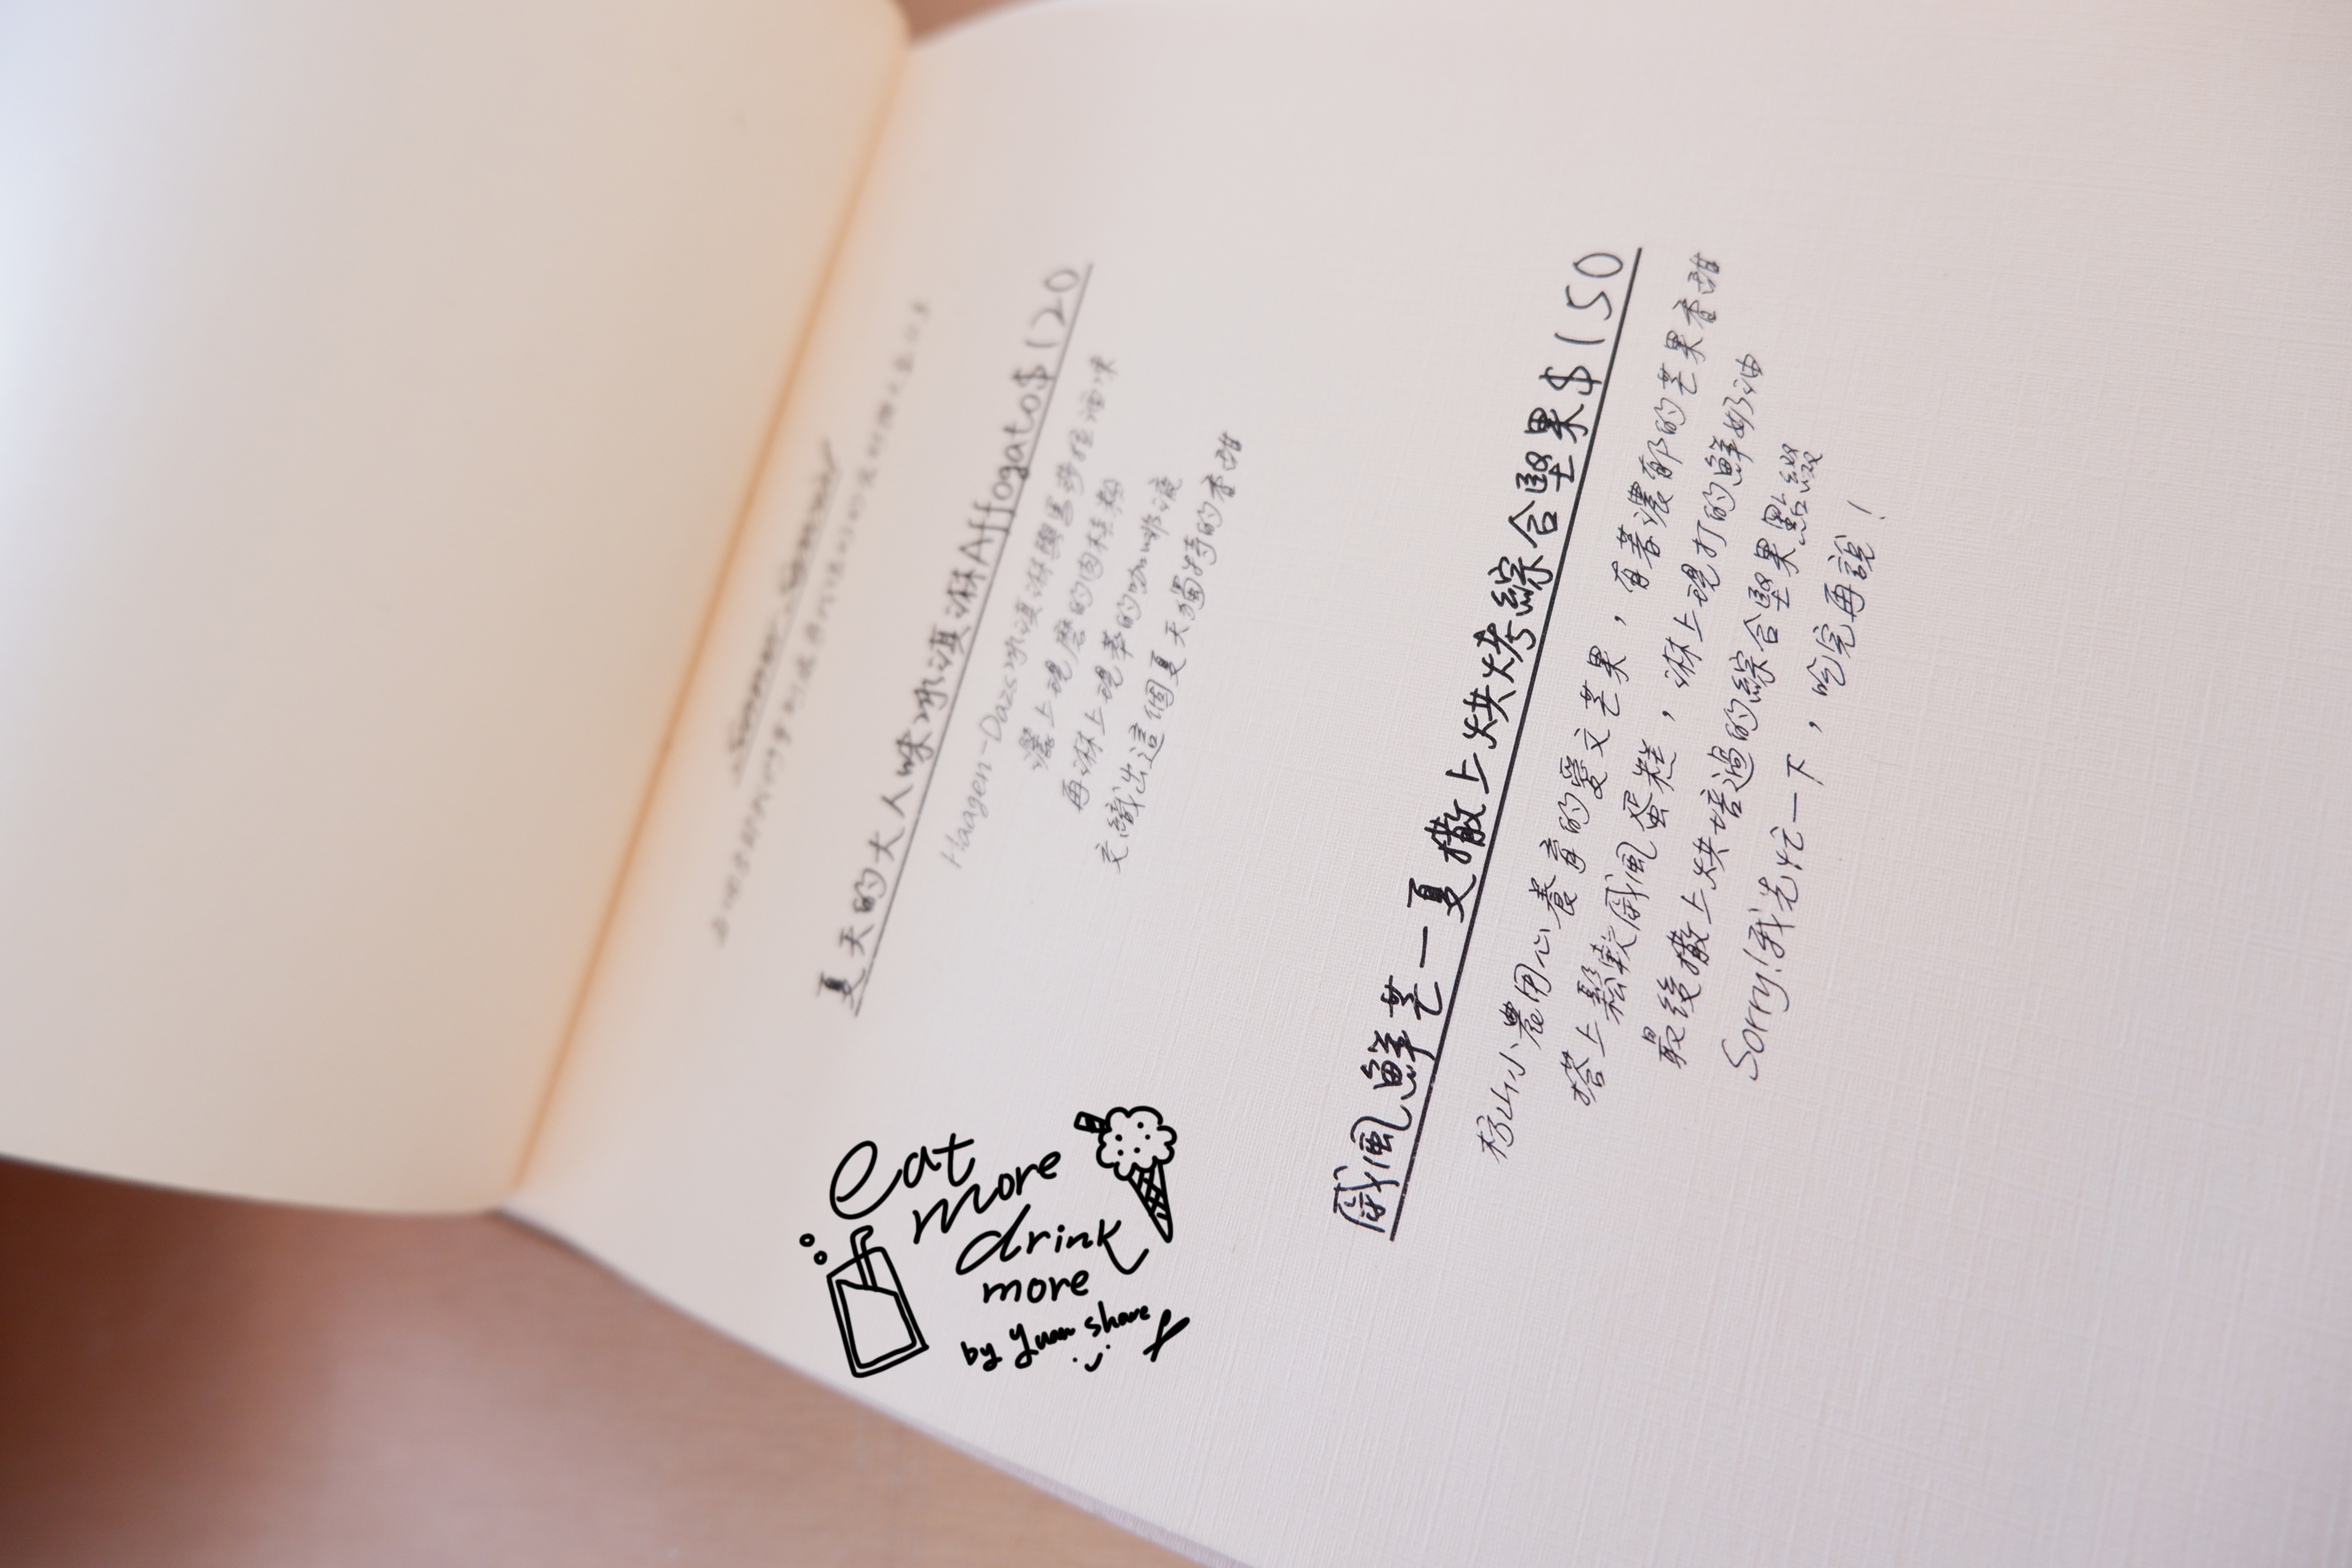 夏天的大人味冰淇淋Affogato$120
Haagen-Dazs冰淇淋與馬莎拉油漬
灑上現磨的肉桂粉
再淋上現萃的咖啡液
交織出這個夏天獨特的香甜
戚風鮮芒—夏撒上烘烤綜合堅果$150
枋山小農用心養育的愛文芒果，有著濃郁的芒果香甜
搭上鬆軟戚風蛋糕，淋上現打的鮮奶油
最後撒上烘培過的綜合堅果點綴
Sorry!我先忙一下，吃完再說！
eat
more
drink
more
by yuan share